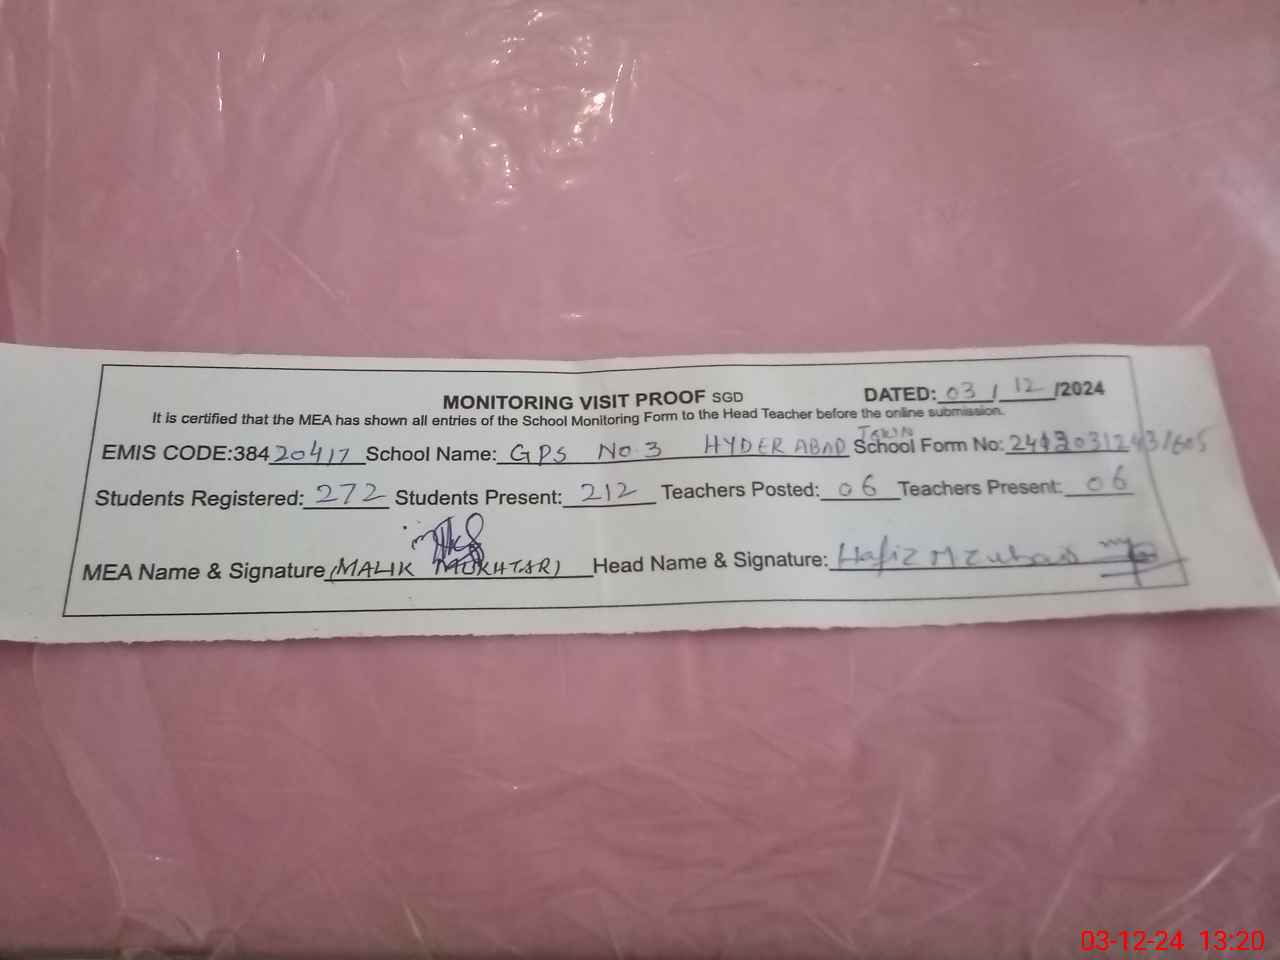 MONITORING VISIT PROOF SGD DATED: 03 / 12 /2024
It is certified that the MEA has shown all entries of the School Monitoring Form to the Head Teacher before the online submission.
EMIS CODE:384 20417 School Name: GPS No. 3 HYDERABAD TOWN School Form No:
Students Registered: 272 Students Present: 212 Teachers Posted: 06 Teachers Present: 06
MEA Name & Signature (MALIK MUKHTAR) Head Name & Signature: Hafiz M
03-12-24 13:20